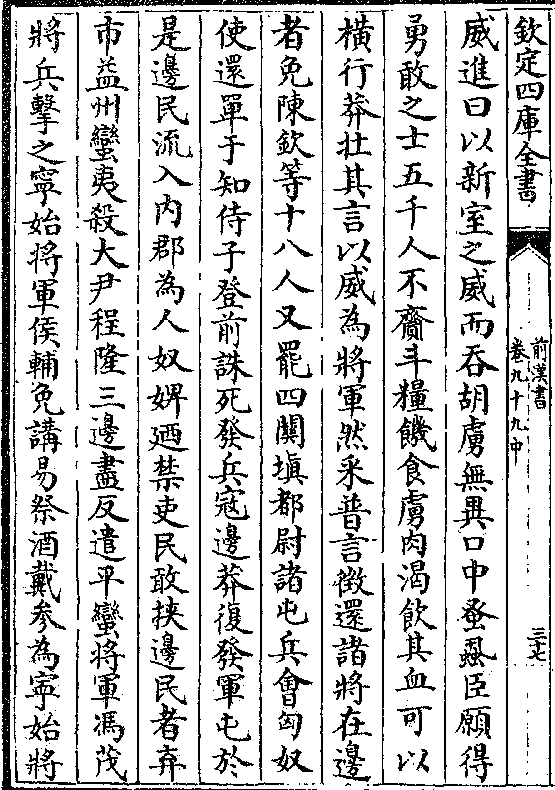 欽定四庫全書
前漢書
卷九十九中
三七
威進曰以新室之威而吞胡虜無異口中蚤蝨臣願得
勇敢之士五千人不齎斗糧饑食虜肉渴飲其血可以
橫行莽壯其言以威為將軍然采普言徴還諸將在邊
者免陳欽等十八人又罷四關塡都尉諸屯兵會匈奴
使還單于知侍子登前誅死發兵寇邊莽復發軍屯於
是邊民流入內郡為人奴婢廼禁吏民敢挾邊民者弃
市益州蠻夷殺大尹程隆三邊盡反遣平蠻將軍馮茂
將兵擊之寧始將軍侯輔免講易祭酒戴參為寧始將